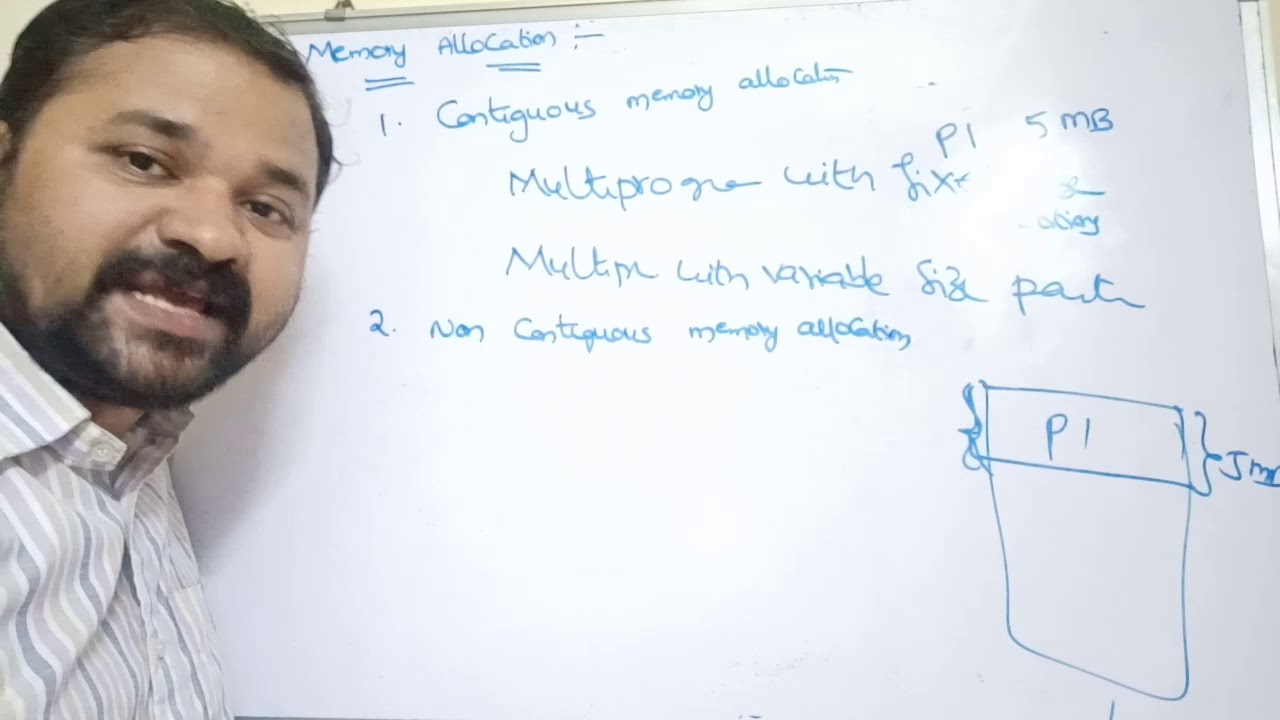 Memory Allocation :-
1. Contiguous memory allocation
P1 5 MB
Multiprogra with fix
Multipr with variable size parti
2. Non Contiguous memory allocation
P1
5 MB